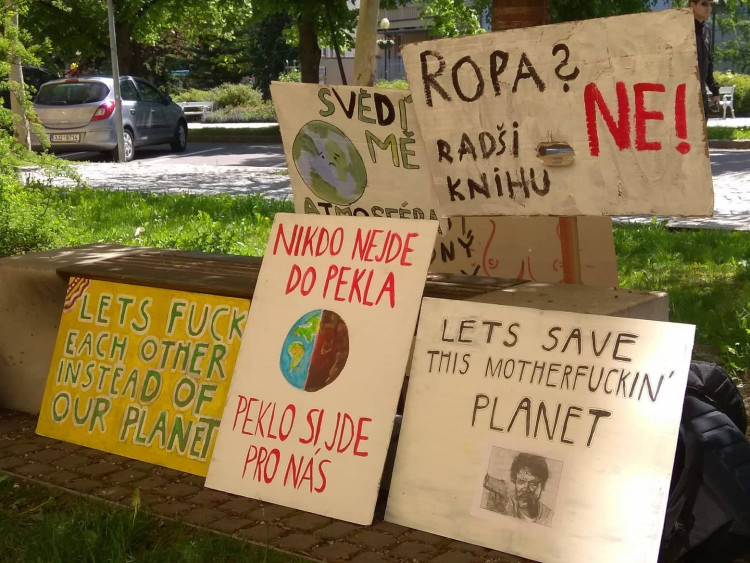 SVĚDÍ
MĚ
ATMOSFÉRA
ROPA?
NE!
RADŠI
KNIHU
NIKDO NEJDE
DO PEKLA
PEKLO SI JDE
PRO NÁS
LETS FUCK
EACH OTHER
INSTEAD OF
OUR PLANET
LETS SAVE
THIS MOTHERFUCKIN'
PLANET